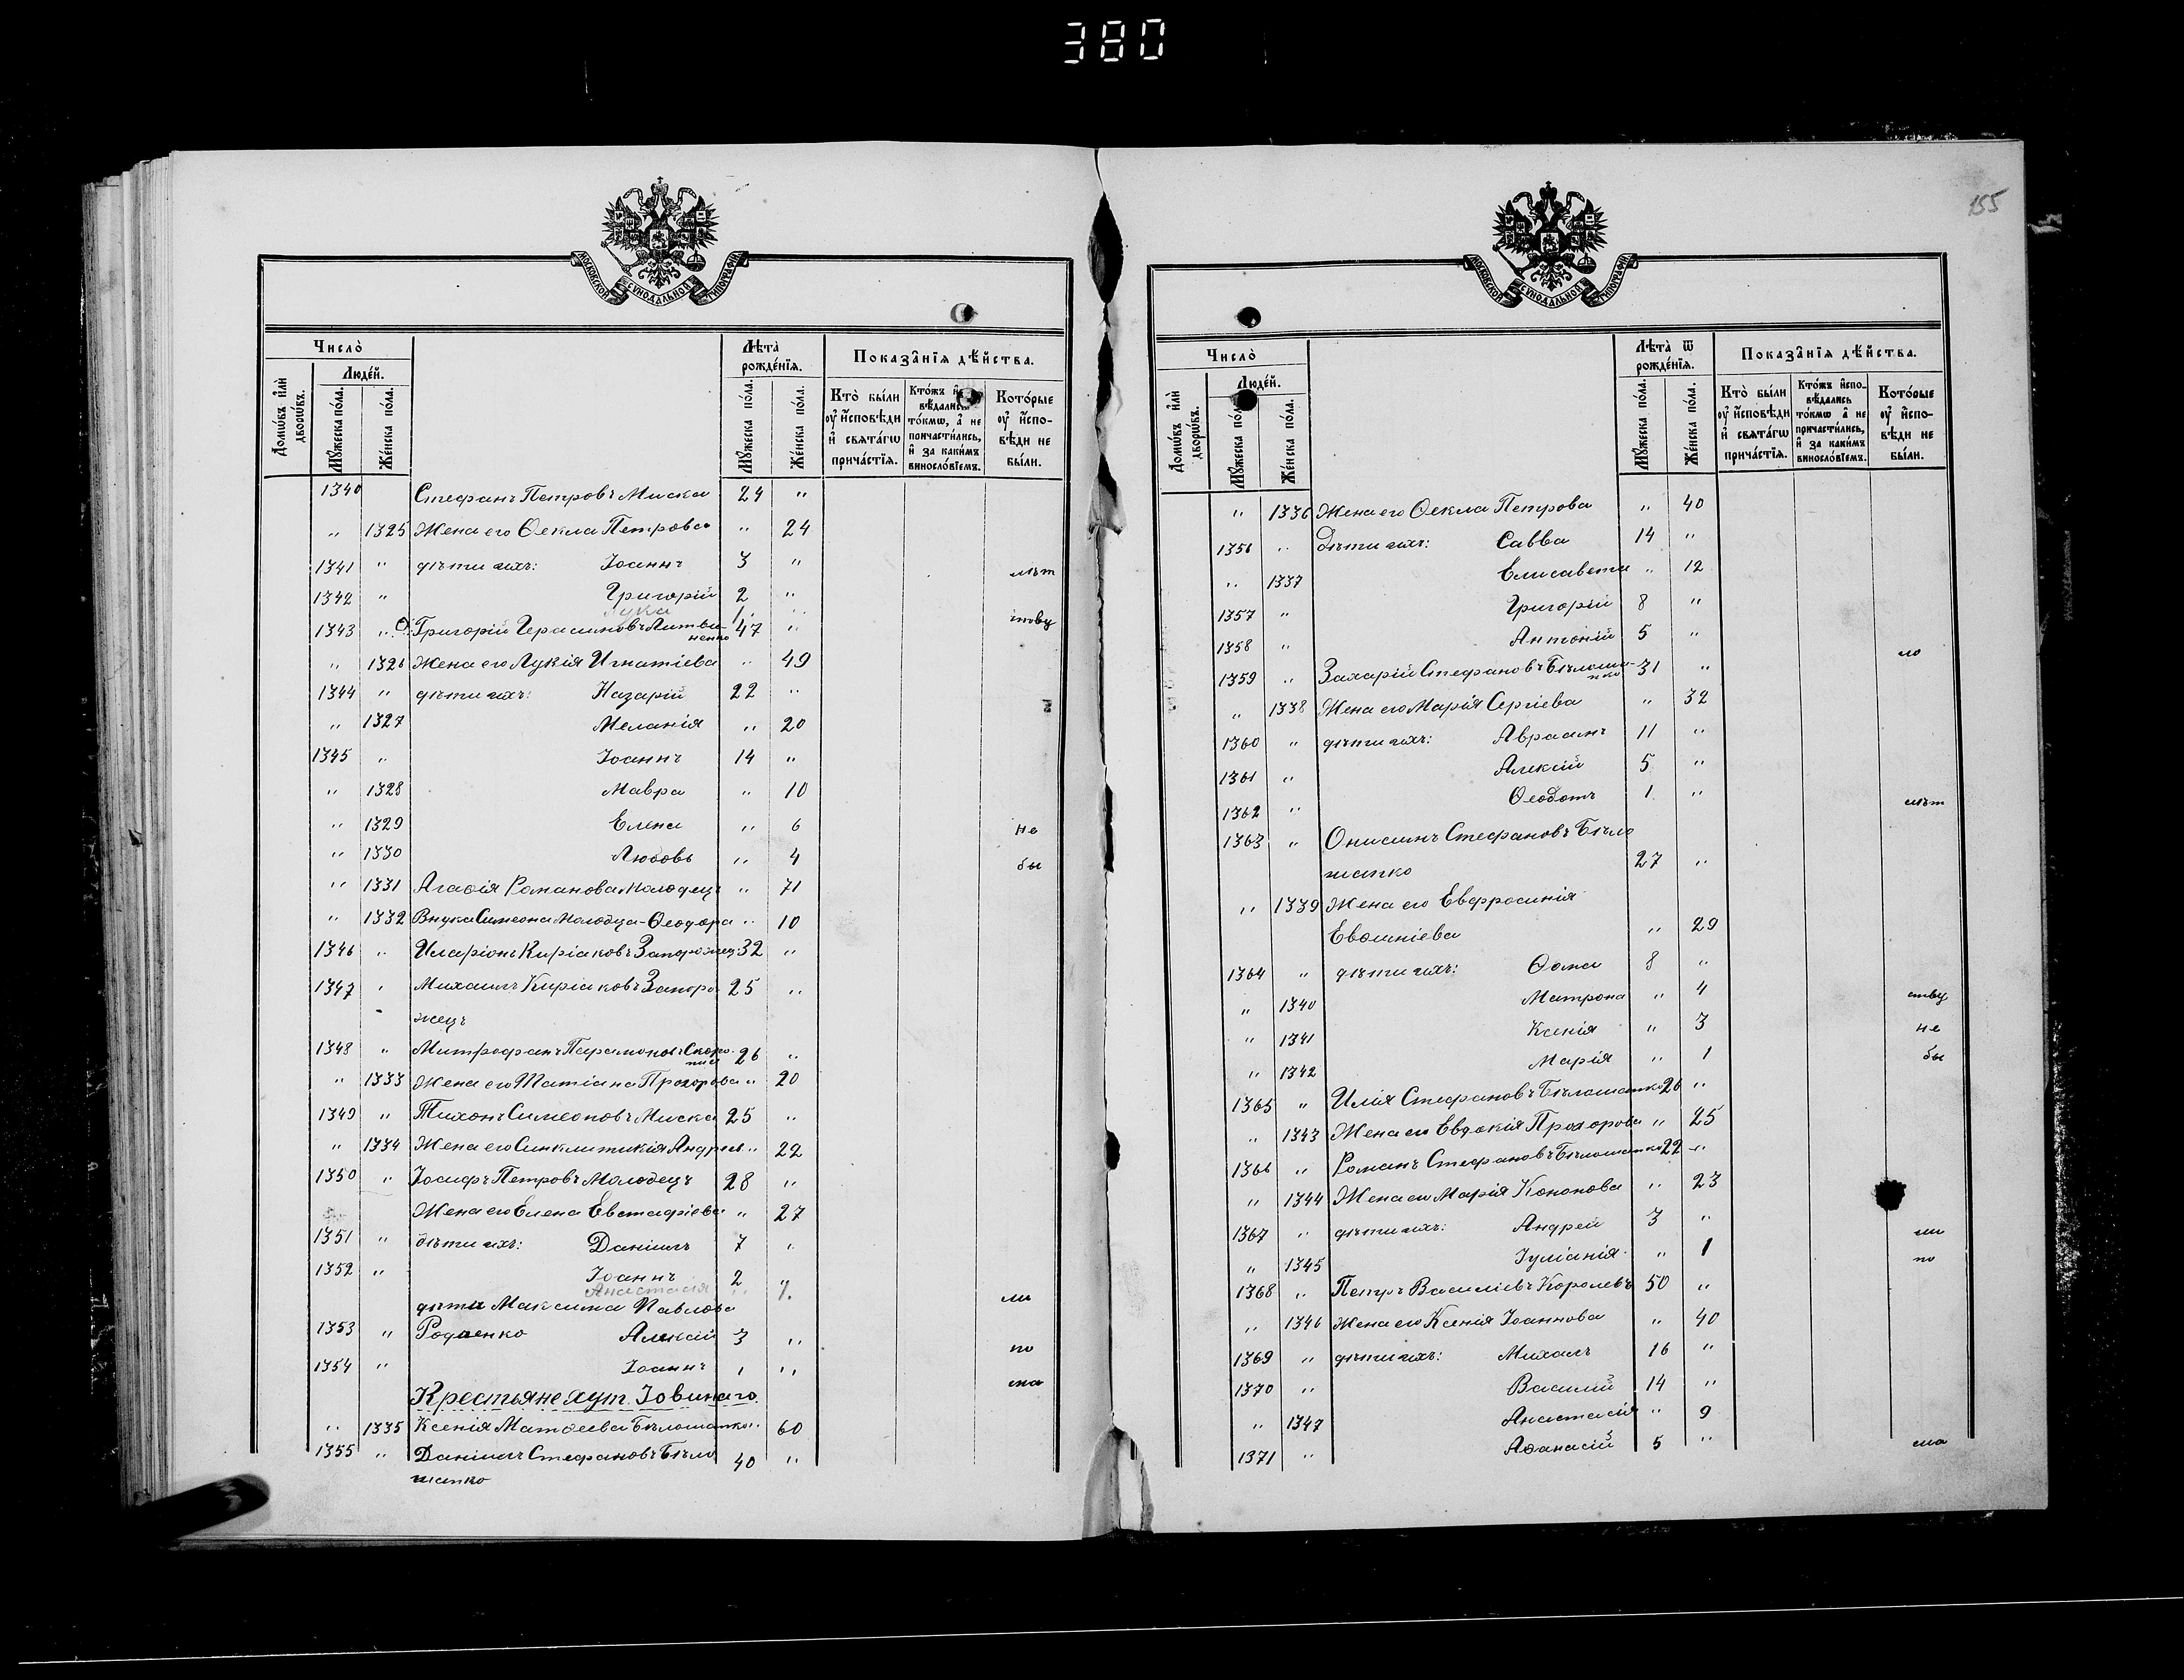 380
155
МОСКОВСКОЙ СѴНОДАЛЬНОЙ ТИПОГРАФІИ
Число̀
Люде́й.
Домѡ́въ и҆лѝ дворѡ́въ.
Мꙋ́жеска по́ла.
Же́нска по́ла.
Лѣта̀ рожде́нїѧ.
Мꙋ́жеска по́ла.
Же́нска по́ла.
Показа̑нїѧ дѣ́йства.
Кто̀ бы́ли оу҆ и҆́сповѣди и҆ свѧта́гѡ прича́стїѧ.
Кто́жъ и҆ вѣ́дались то́кмѡ, а҆ не причасти́лись, и҆ за каки́мъ винослѡ́вїемъ.
Кото́рые оу҆ и҆́спо- вѣди не бы́ли.
1340 Стефанъ Петровъ Миска 24 "
" 1325 Жена его Ѳекла Петрова " 24
1341 " дѣти ихъ: Іоаннъ 3 " лѣт
1342 " Григорій 2 "
Лука 1
1343 " Григорій Герасимовъ Литви- ненко 47 " ству
" 1326 Жена его Лукія Игнатіева " 49
1344 " дѣти ихъ: Назарій 22 "
" 1327 Меланія " 20
1345 " Іоаннъ 14 "
" 1328 Мавра " 10
" 1329 Елена " 6 не
" 1330 Любовь " 4 бы
" 1331 Агафія Романова Молодецъ " 71
" 1332 Внука Симеона Молодца - Ѳеодора " 10
1346 " Иларіонъ Киріаковъ Запорожец 32 "
1347 " Михаилъ Киріаковъ Запоро 25 "
жецъ
1348 " Митрофанъ Парамоновъ 26 "
" 1333 Жена его Татіана Прохорова " 20
1349 " Тихонъ Симеоновъ Миска 25 "
" 1334 Жена его Синклитикія Андрее " 22
1350 " Іосифъ Петровъ Молодецъ 28 "
Жена его Елена Евстафіева " 27
1351 " дѣти ихъ: Даніилъ 7 "
1352 " Іоаннъ 2 "
Анастасія " 1.
дѣти Максима Павлова ли
1353 " Родаенко Алексій 3 " по
1354 " Іоаннъ 1 "
Крестьяне хут. Іовинаго
" 1335 Ксенія Матѳеева Бѣлошапко " 60
1355 " Даніилъ Стефановъ Бѣло 40 "
шапко
МОСКОВСКОЙ СѴНОДАЛЬНОЙ ТИПОГРАФІИ
Число̀
Люде́й.
Домѡ́въ и҆лѝ дворѡ́въ.
Мꙋ́жеска по́ла.
Же́нска по́ла.
Лѣта̀ ѿ рожде́нїѧ.
Мꙋ́жеска по́ла.
Же́нска по́ла.
Показа̑нїѧ дѣ́йства.
Кто̀ бы́ли оу҆ и҆́сповѣди и҆ свѧта́гѡ прича́стїѧ.
Кто́жъ и҆спо- вѣ́дались то́кмѡ а҆ не причасти́лись, и҆ за каки́мъ винослѡ́вїемъ.
Кото́рые оу҆ и҆́спо- вѣди не бы́ли.
" 1336 Жена его Ѳекла Петрова " 40
1356 " Дѣти ихъ: Савва 14 "
" 1337 Елисавета " 12
1357 " Григорій 8 "
1358 " Антоній 5 "
1359 " Захарій Стефановъ Бѣлоша- пко 31 "
" 1338 Жена его Марія Сергіева " 32
1360 " дѣти ихъ: Авраамъ 11 "
1361 " Алексій 5 "
1362 " Ѳеодотъ 1 " лѣт
1363 " Онисимъ Стефановъ Бѣло
шапко 27 "
" 1339 Жена его Евфросинія
Евѳиміева " 29
1364 " дѣти ихъ: Ѳома 8 "
" 1340 Матрона " 4 ству
" 1341 Ксенія " 3 не
" 1342 Марія " 1 бы
1365 " Илія Стефановъ Бѣлошапко 26 "
" 1343 Жена его Евдокія Прохорова " 25
1366 " Романъ Стефановъ Бѣлошапко 22 "
" 1344 Жена его Марія Кононова " 23
1367 " дѣти ихъ: Андрей 3 " ли
" 1345 Іуліанія " 1 по
1368 " Петръ Василіевъ Королевъ 50 "
" 1346 Жена его Ксенія Іоаннова " 40
1369 " дѣти ихъ: Михаилъ 16 "
1370 " Василій 14 "
" 1347 Анастасія " 9
1371 " Аѳанасій 5 "